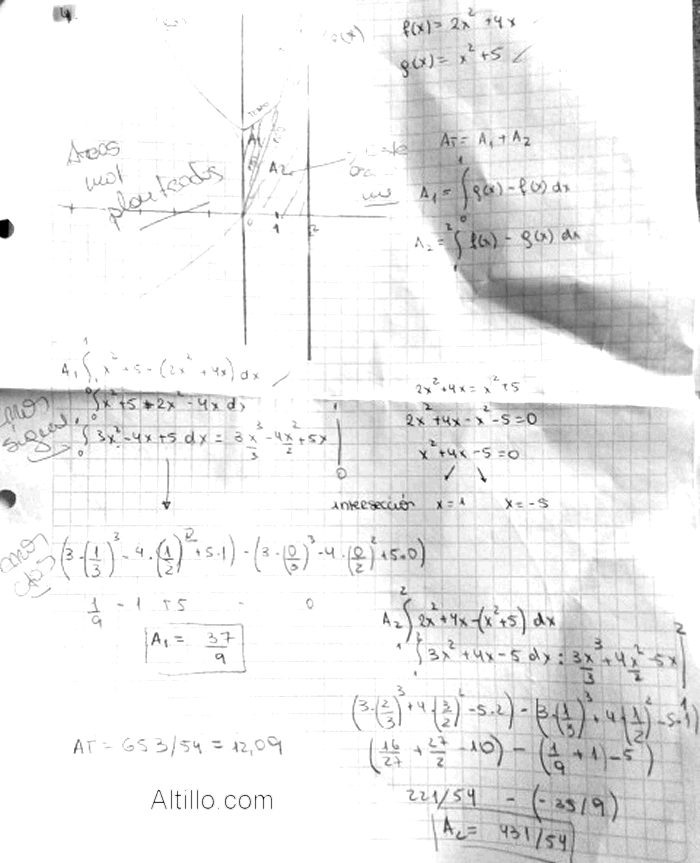 4.
f(x) = 2x² + 4x
g(x) = x² + 5
Areas
mal
planteados
A1
A2
0 1 2
AT = A1 + A2
A1 = ∫₀¹ g(x) - f(x) dx
A2 = ∫₁² f(x) - g(x) dx
A1 ∫₀¹ x² + 5 - (2x² + 4x) dx
∫₀¹ x² + 5 + 2x² - 4x dx
∫₀¹ 3x² - 4x + 5 dx = 3x³/3 - 4x²/2 + 5x |₀¹
2x² + 4x = x² + 5
2x² + 4x - x² - 5 = 0
x² + 4x - 5 = 0
intersección x = 1 x = -5
(3·(1/3)³ - 4·(1/2)² + 5·1) - (3·(0/3)³ - 4·(0/2)² + 5·0)
1/9 - 1 + 5 - 0
A1 = 37/9
A2 ∫₁² 2x² + 4x - (x² + 5) dx
∫₁² 3x² + 4x - 5 dx : 3x³/3 + 4x²/2 - 5x |₁²
(3·(2/3)³ + 4·(3/2)² - 5·2) - (3·(1/3)³ + 4·(1/2)² - 5·1)
(16/27 + 27/2 - 10) - (1/9 + 1 - 5)
221/54 - (-35/9)
A2 = 431/54
AT = 653/54 = 12,09
Altillo.com